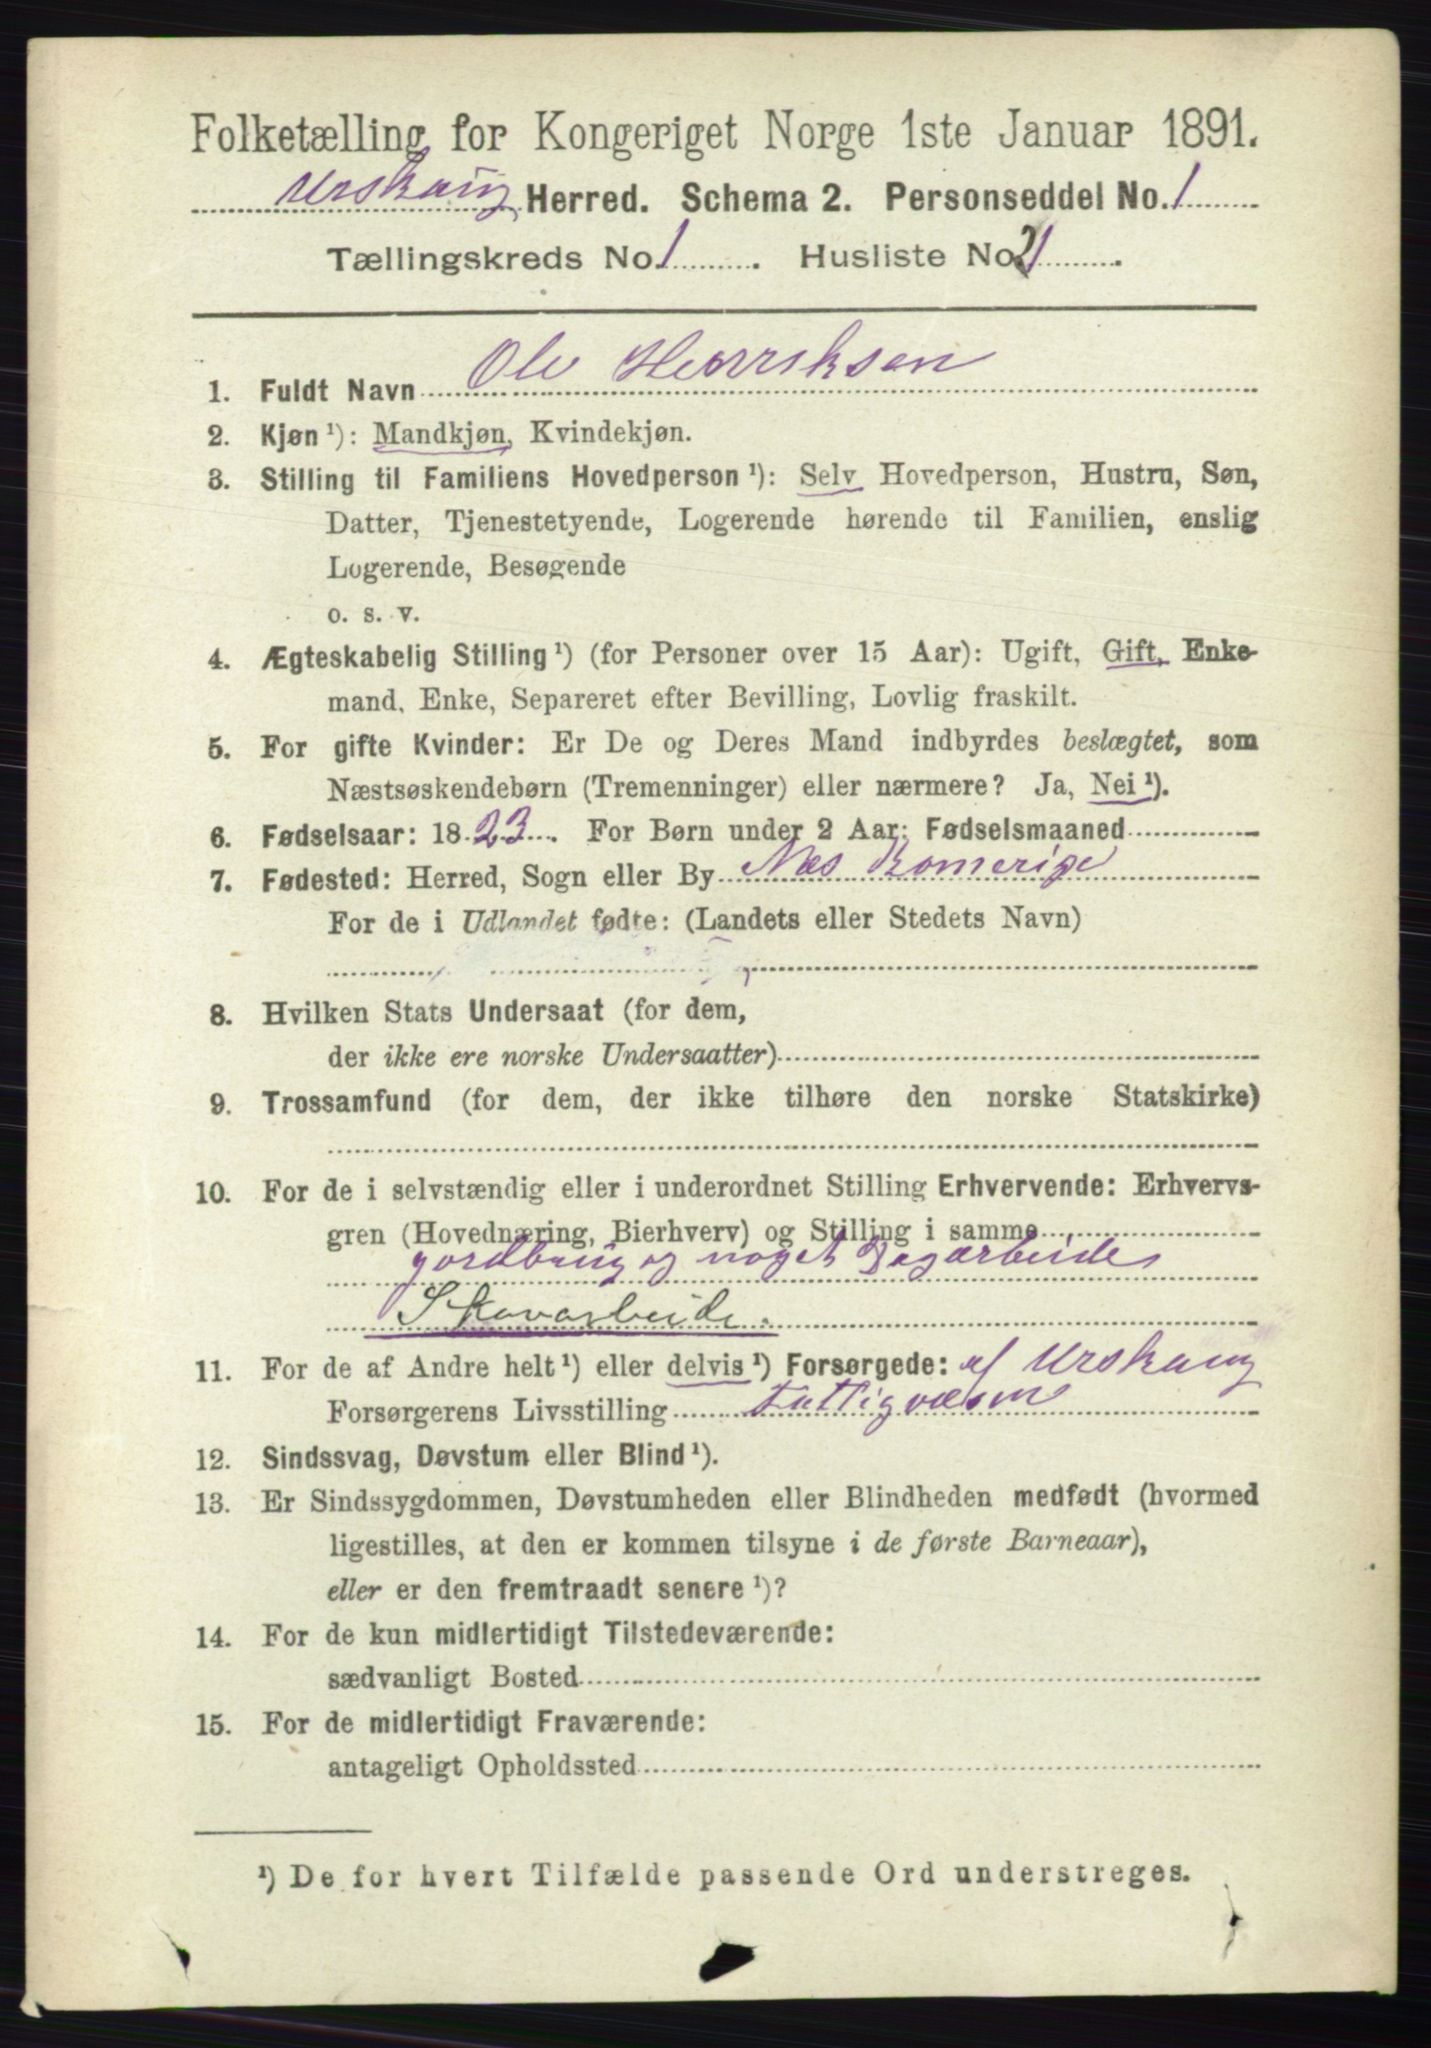 Folketælling for Kongeriget Norge 1ste Januar 1891.
Urskaug Herred. Schema 2. Personseddel No. 1
Tællingskreds No. 1. Husliste No. 21.
1. Fuldt Navn Ole Henriksen
2. Kjøn¹): Mandkjøn, Kvindekjøn.
3. Stilling til Familiens Hovedperson¹): Selv Hovedperson, Hustru, Søn,
Datter, Tjenestetyende, Logerende hørende til Familien, enslig
Logerende, Besøgende
o. s. v.
4. Ægteskabelig Stilling¹) (for Personer over 15 Aar): Ugift, Gift, Enke-
mand, Enke, Separeret efter Bevilling, Lovlig fraskilt.
5. For gifte Kvinder: Er De og Deres Mand indbyrdes beslægtet, som
Næstsøskendebørn (Tremenninger) eller nærmere? Ja, Nei¹).
6. Fødselsaar: 1823. For Børn under 2 Aar: Fødselsmaaned
7. Fødested: Herred, Sogn eller By Næs Romerige
For de i Udlandet fødte: (Landets eller Stedets Navn)
8. Hvilken Stats Undersaat (for dem,
der ikke ere norske Undersaatter)
9. Trossamfund (for dem, der ikke tilhøre den norske Statskirke)
10. For de i selvstændig eller i underordnet Stilling Erhvervende: Erhvervs-
gren (Hovednæring, Bierhverv) og Stilling i samme
jordbrug og noget Dagarbeide
Skovarbeide.
11. For de af Andre helt¹) eller delvis¹) Forsørgede: af Urskaug
Forsørgerens Livsstilling Fattigvæsen
12. Sindssvag, Døvstum eller Blind¹).
13. Er Sindssygdommen, Døvstumheden eller Blindheden medfødt (hvormed
ligestilles, at den er kommen tilsyne i de første Barneaar),
eller er den fremtraadt senere¹)?
14. For de kun midlertidigt Tilstedeværende:
sædvanligt Bosted
15. For de midlertidigt Fraværende:
antageligt Opholdssted
¹) De for hvert Tilfælde passende Ord understreges.